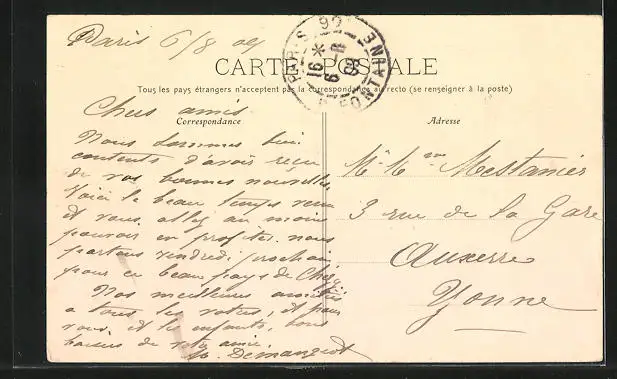 Paris 6/8 09
PARIS 92
16 *
6 - 8
09
R. FONTAINE
CARTE POSTALE
Tous les pays étrangers n'acceptent pas la correspondance au recto (se renseigner à la poste)
Chers amis
Correspondance
Adresse
Nous sommes bien
contents d'avoir reçu
de vos bonnes nouvelles,
Voici le beau temps venu
et vous allez au moins
pouvoir en profiter. nous
partons vendredi prochain
pour ce beau pays de
Nos meilleures amitiés
a tous les votres, et pour
vous et les enfants, bons
baisers de votre amie.
Demangeot
Mr Mme Mestanier
3 rue de la Gare
Auxerre
Yonne